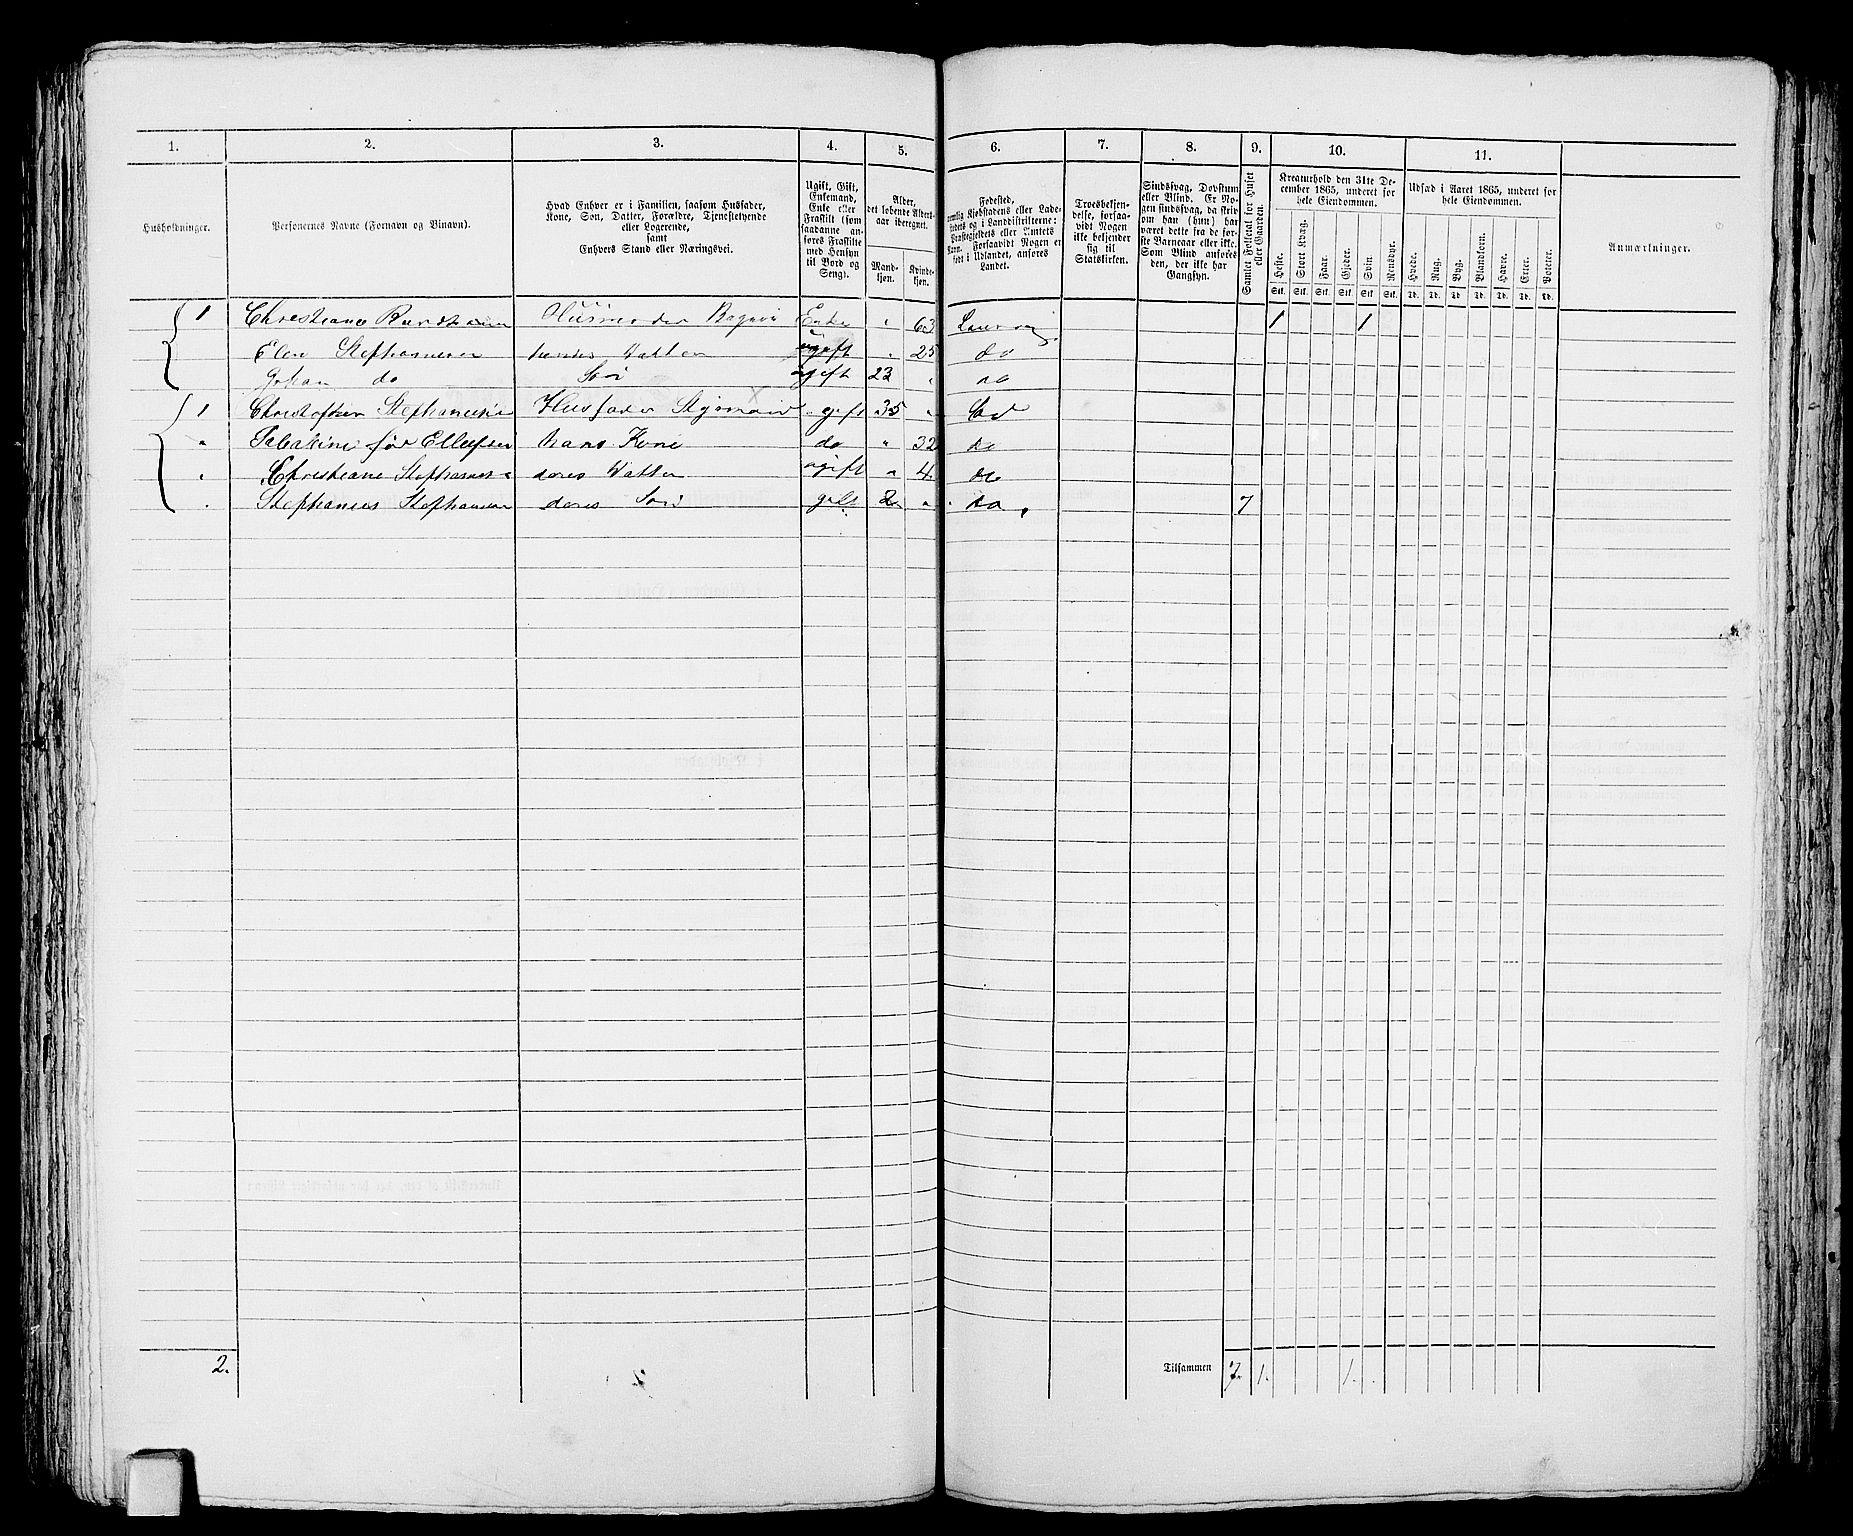 1. 2. 3. 4. 5. 6. 7. 8. 9. 10. 11.
Husholdninger.
Personernes Navne (Fornavn og Tilnavn).
Hvad Enhver er i Familien, saasom Husfader,
Kone, Søn, Datter, Forældre, Tjenestetyende
eller Logerende,
samt
Enhvers Stand eller Næringsvei.
Ugift, Gift,
Enkemand,
Enke eller
Fraskilt (som
saadanne an-
føres Fraskilte
med Hensyn
til Bord og
Seng).
Alder,
det løbende Alders-
aar iberegnet.
Mand-
kjøn.
Kvinde-
kjøn.
Fødested,
nemlig Kjøbstadens eller Lade-
stedets og i Landdistrikterne:
Præstegjeldets eller Amtets
Navn. Forsaavidt Nogen er
født i Udlandet, anføres
Landet.
Troesbekjen-
delse, forsaa-
vidt Nogen
ikke bekjender
sig til
Statskirken.
Sindssvag, Døvstum
eller Blind. Er No-
gen sindssvag, da skriv
om han (hun) har
været dette fra de før-
ste Barneaar eller ikke.
Som Blind anføres
den, der ikke har
Gangsyn.
Samlet Folketal for Huset
eller Gaarden.
Kreaturhold den 31te De-
cember 1865, underet for
hele Eiendommen.
Heste. Stort Kvæg. Faar. Gjeder. Svin. Rensdyr.
Stk. Stk. Stk. Stk. Stk. Stk.
Udsæd i Aaret 1865, underet for
hele Eiendommen.
Hvede. Rug. Byg. Blandkorn. Havre. Erter. Poteter.
Td. Td. Td. Td. Td. Td. Td.
Anmærkninger.
1 Christiane Husmoder Enke " 63 Laurvig 1 1
Elen Stephansen hendes Datter ugift " 25 do
Johan do Søn ugift 23 " do
1 Christopher Stephansen Husfader Styrmand gift 35 "
" før Ellefsen hans Kone do " 32 do
" Christiane Stephansen deres Datter ugift " 4 do
" Stephanus Stephansen deres Søn 2 " do 7
2. Tilsammen 7 1. 1.